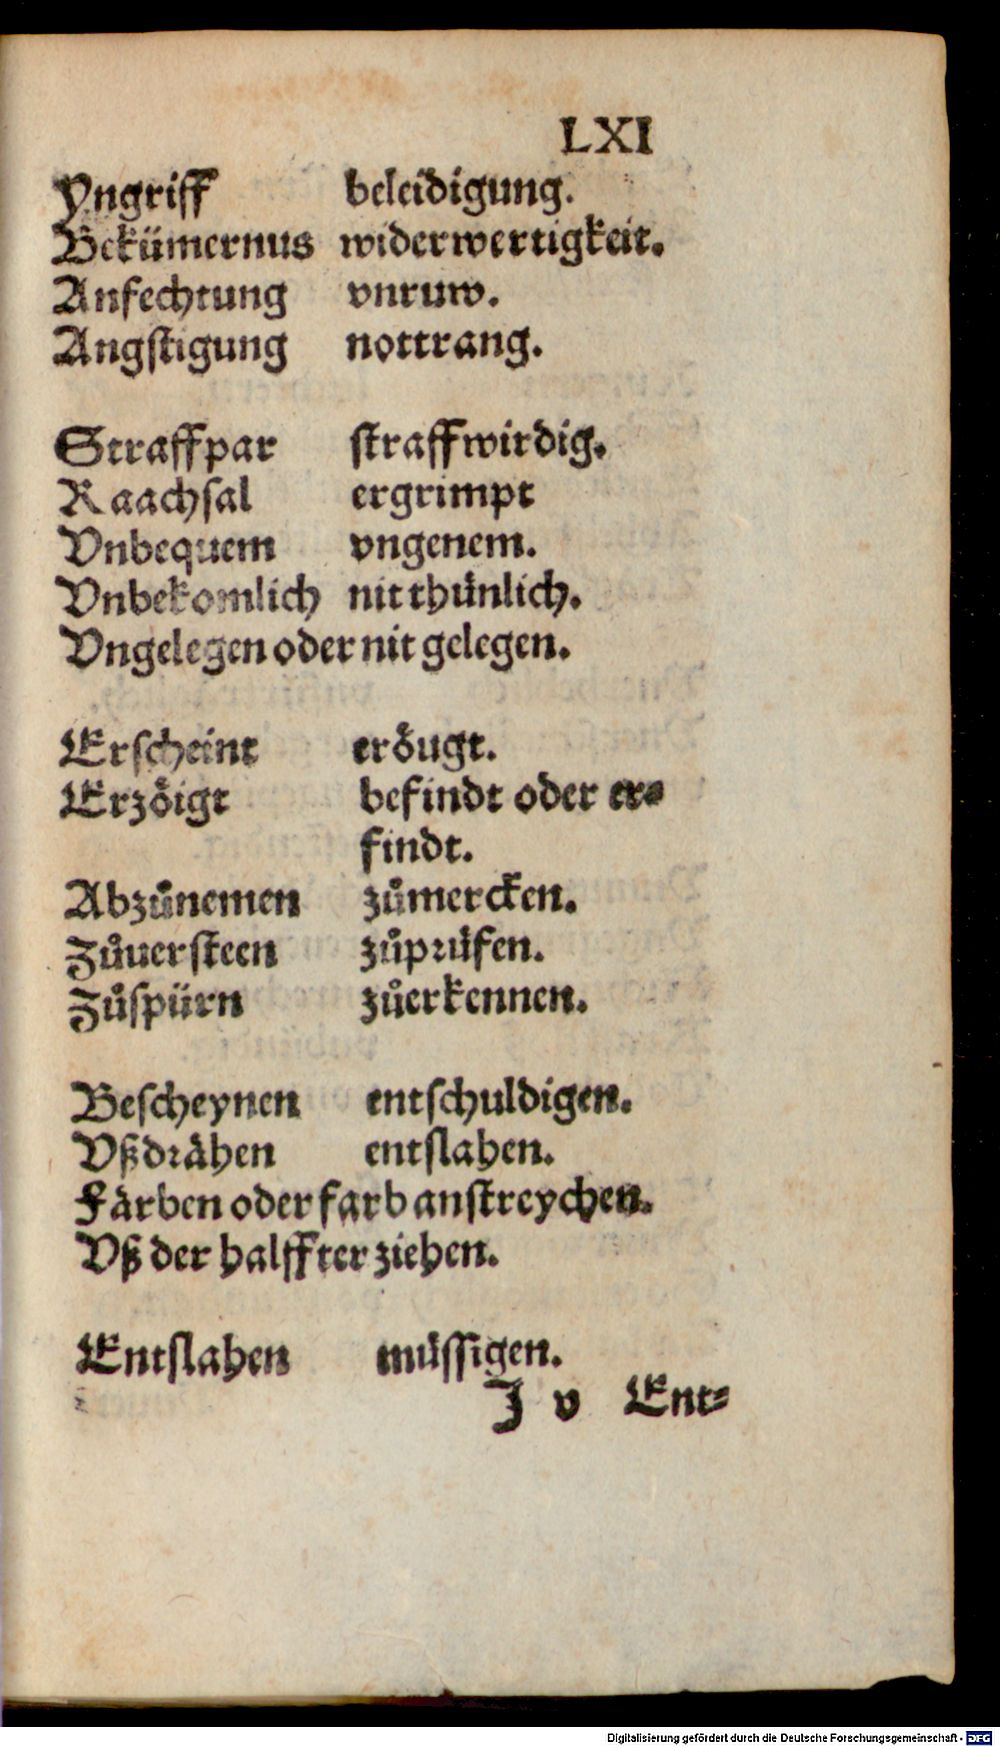 LXI
Yngriff beleidigung.
Bekümernus widerwertigkeit.
Anfechtung vnruw.
Angstigung nottrang.
Straffpar straffwirdig.
Raachsal ergrimpt
Vnbequem vngenem.
Vnbekomlich nit thünlich.
Vngelegen oder nit gelegen.
Erscheint eröugt.
Erzöigt befindt oder er⸗
findt.
Abzůnemen zůmercken.
Zůuersteen zůprüfen.
Zůspürn zůerkennen.
Bescheynen entschuldigen.
Vßdrähen entslahen.
Färben oder farb anstreychen.
Vß der halffter ziehen.
Entslahen müssigen.
J v Ent⸗
Digitalisierung gefördert durch die Deutsche Forschungsgemeinschaft - DFG